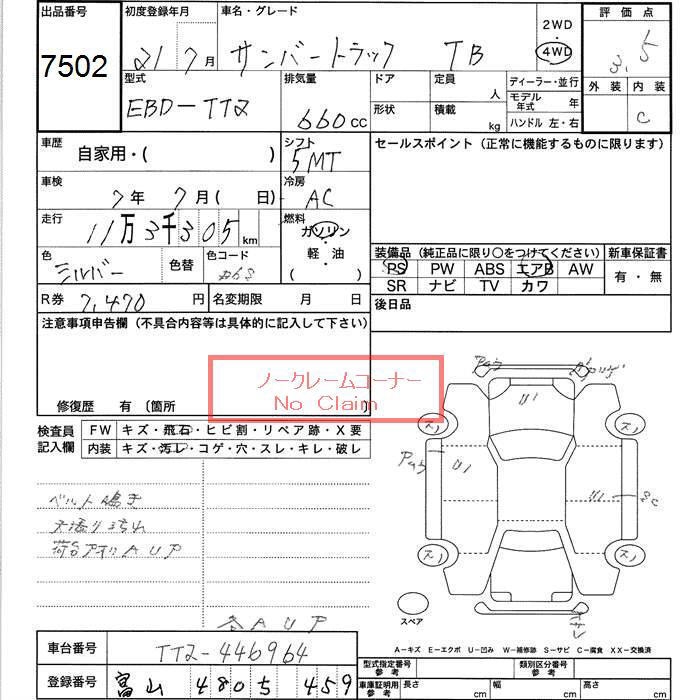 出品番号 初度登録年月 車名・グレード 2WD 評価点
7502 21 7月 サンバートラック TB 4WD 3.5
型式 排気量 ドア 定員 ディーラー・並行 外装 内装
人 モデル年式 年
EBD-TT2 660cc 形状 積載 kg ハンドル 左・右 C
車歴 自家用・( ) シフト 5MT セールスポイント (正常に機能するものに限ります)
車検 7年 7月( 日) 冷房 AC
走行 11万3千305km 燃料 ガソリン・軽油 ( )
装備品 (純正品に限り○をつけてください) 新車保証書
色 シルバー 色替 色コード PS PW ABS エアB AW 有・無
SR ナビ TV カワ
R券 7,470円 名変期限 月 日 後日品
注意事項申告欄 (不具合内容等は具体的に記入して下さい)
ノークレームコーナー
No Claim
修復歴 有 〔箇所 〕
検査員記入欄 FW キズ・飛石・ヒビ割・リペア跡・X要
内装 キズ・汚レ・コゲ・穴・スレ・キレ・破レ
U1
U1 U1
ベルト鳴き
荷台アオリAUP
スペア
各AUP
A-キズ E-エクボ U-凹み W-補修跡 S-サビ C-腐食 XX-交換済
車台番号 TT2-446964 型式指定番号 参考 類別区分番号 参考
登録番号 富山 480 5 459 車庫証明用 参考 長さ cm 幅 cm 高さ cm